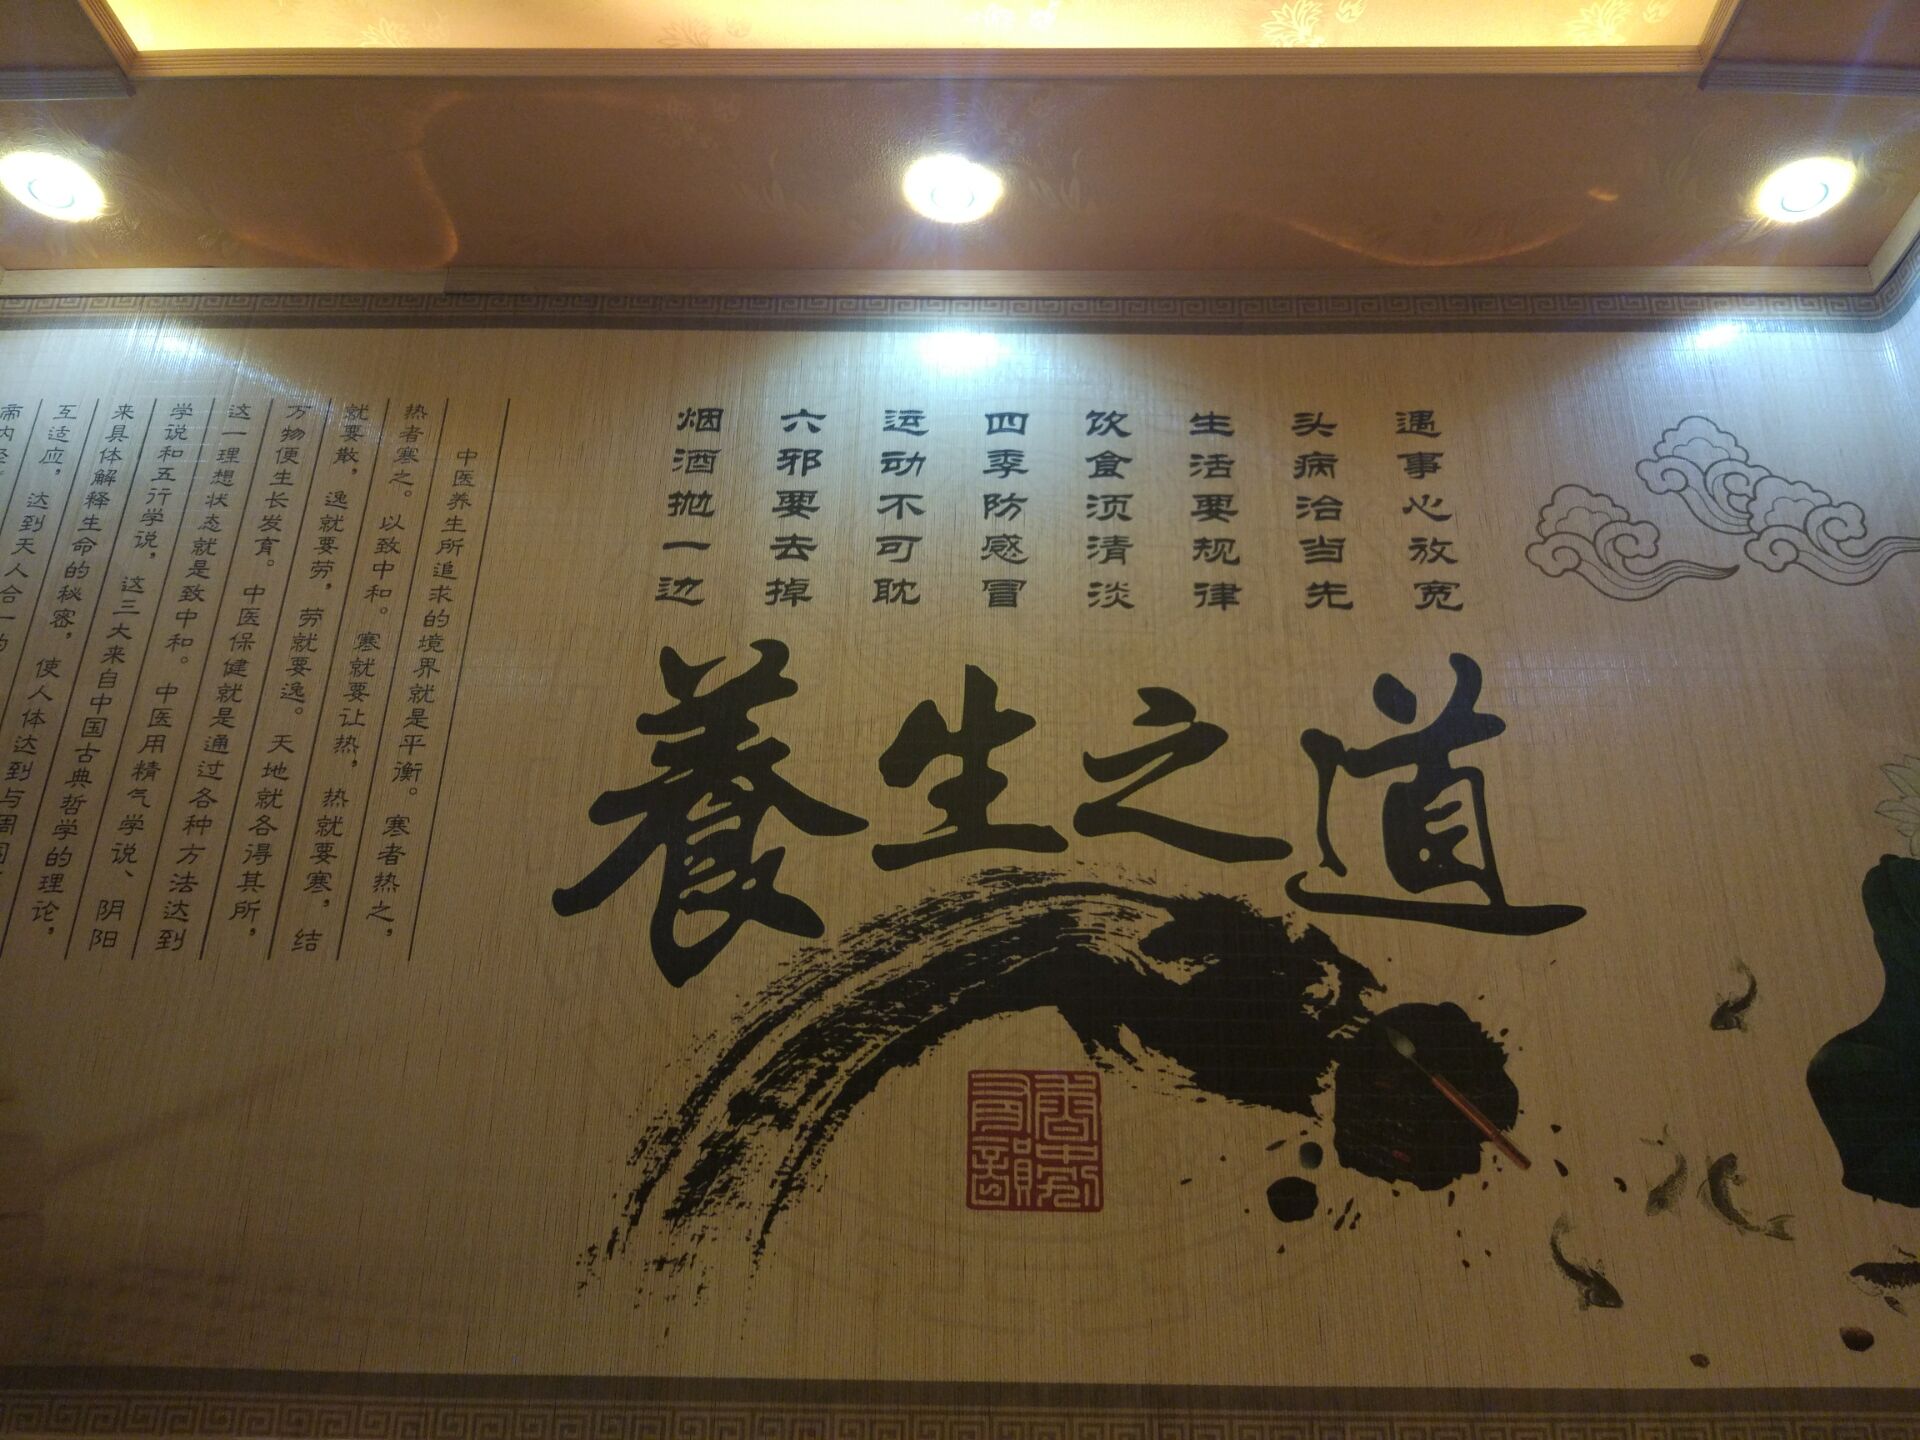 遇事心放宽
头病治当先
生活要规律
饮食须清淡
四季防感冒
运动不可耽
六邪要去掉
烟酒抛一边
養生之道
中医养生所追求的境界就是平衡。寒者热之，
热者寒之。以致中和。寒就要让热，热就要寒，结
就要散，逸就要劳，劳就要逸。天地就各得其所，
万物便生长发育。中医保健就是通过各种方法达到
这一理想状态就是致中和。中医用精气学说、阴阳
学说和五行学说，这三大来自中国古典哲学的理论，
来具体解释生命的秘密，使人体达到与周围
互适应，达到天人合一的